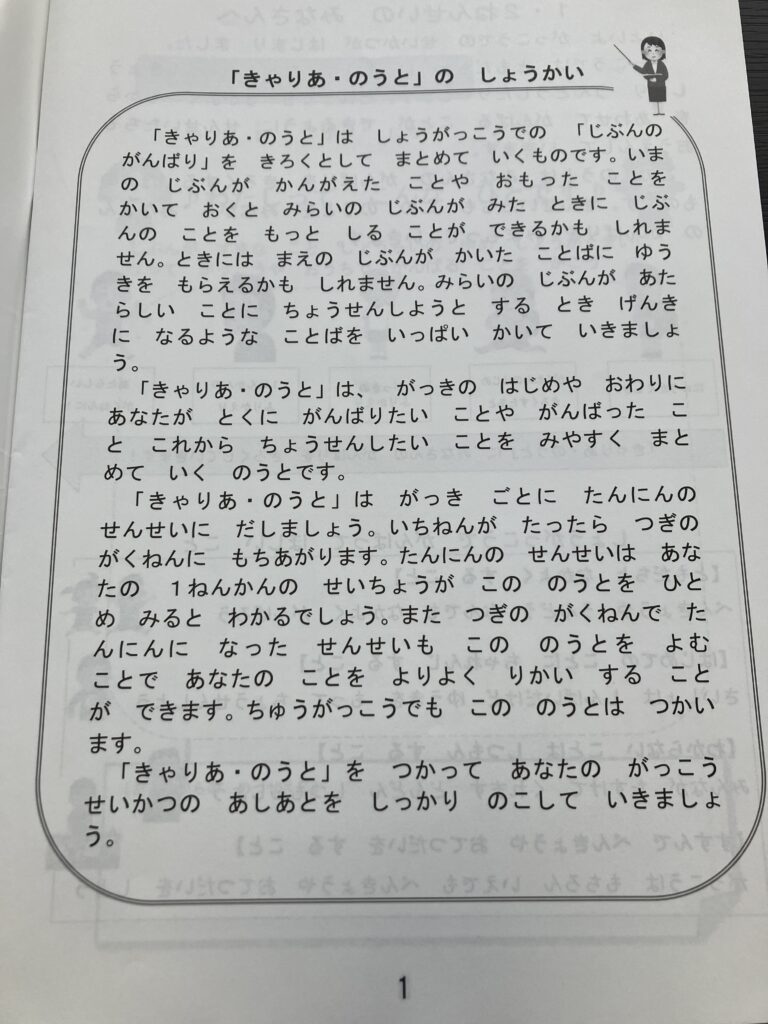 「きゃりあ・のうと」の　しょうかい
「きゃりあ・のうと」は　しょうがっこうでの　「じぶんの
がんばり」を　きろくとして　まとめて　いくものです。いま
の　じぶんが　かんがえた　ことや　おもった　ことを
かいて　おくと　みらいの　じぶんが　みた　ときに　じぶ
んの　ことを　もっと　しる　ことが　できるかも　しれま
せん。ときには　まえの　じぶんが　かいた　ことばに　ゆう
きを　もらえるかも　しれません。みらいの　じぶんが　あた
らしい　ことに　ちょうせんしようと　する　とき　げんき
に　なるような　ことばを　いっぱい　かいて　いきましょ
う。
「きゃりあ・のうと」は、　がっきの　はじめや　おわりに
あなたが　とくに　がんばりたい　ことや　がんばった　こ
と　これから　ちょうせんしたい　ことを　みやすく　まと
めて　いく　のうとです。
「きゃりあ・のうと」は　がっき　ごとに　たんにんの
せんせいに　だしましょう。いちねんが　たったら　つぎの
がくねんに　もちあがります。たんにんの　せんせいは　あな
たの　１ねんかんの　せいちょうが　この　のうとを　ひと
め　みると　わかるでしょう。また　つぎの　がくねんで　た
んにんに　なった　せんせいも　この　のうとを　よむ
ことで　あなたの　ことを　よりよく　りかい　する　こと
が　できます。ちゅうがっこうでも　この　のうとは　つかい
ます。
「きゃりあ・のうと」を　つかって　あなたの　がっこう
せいかつの　あしあとを　しっかり　のこして　いきましょ
う。
1